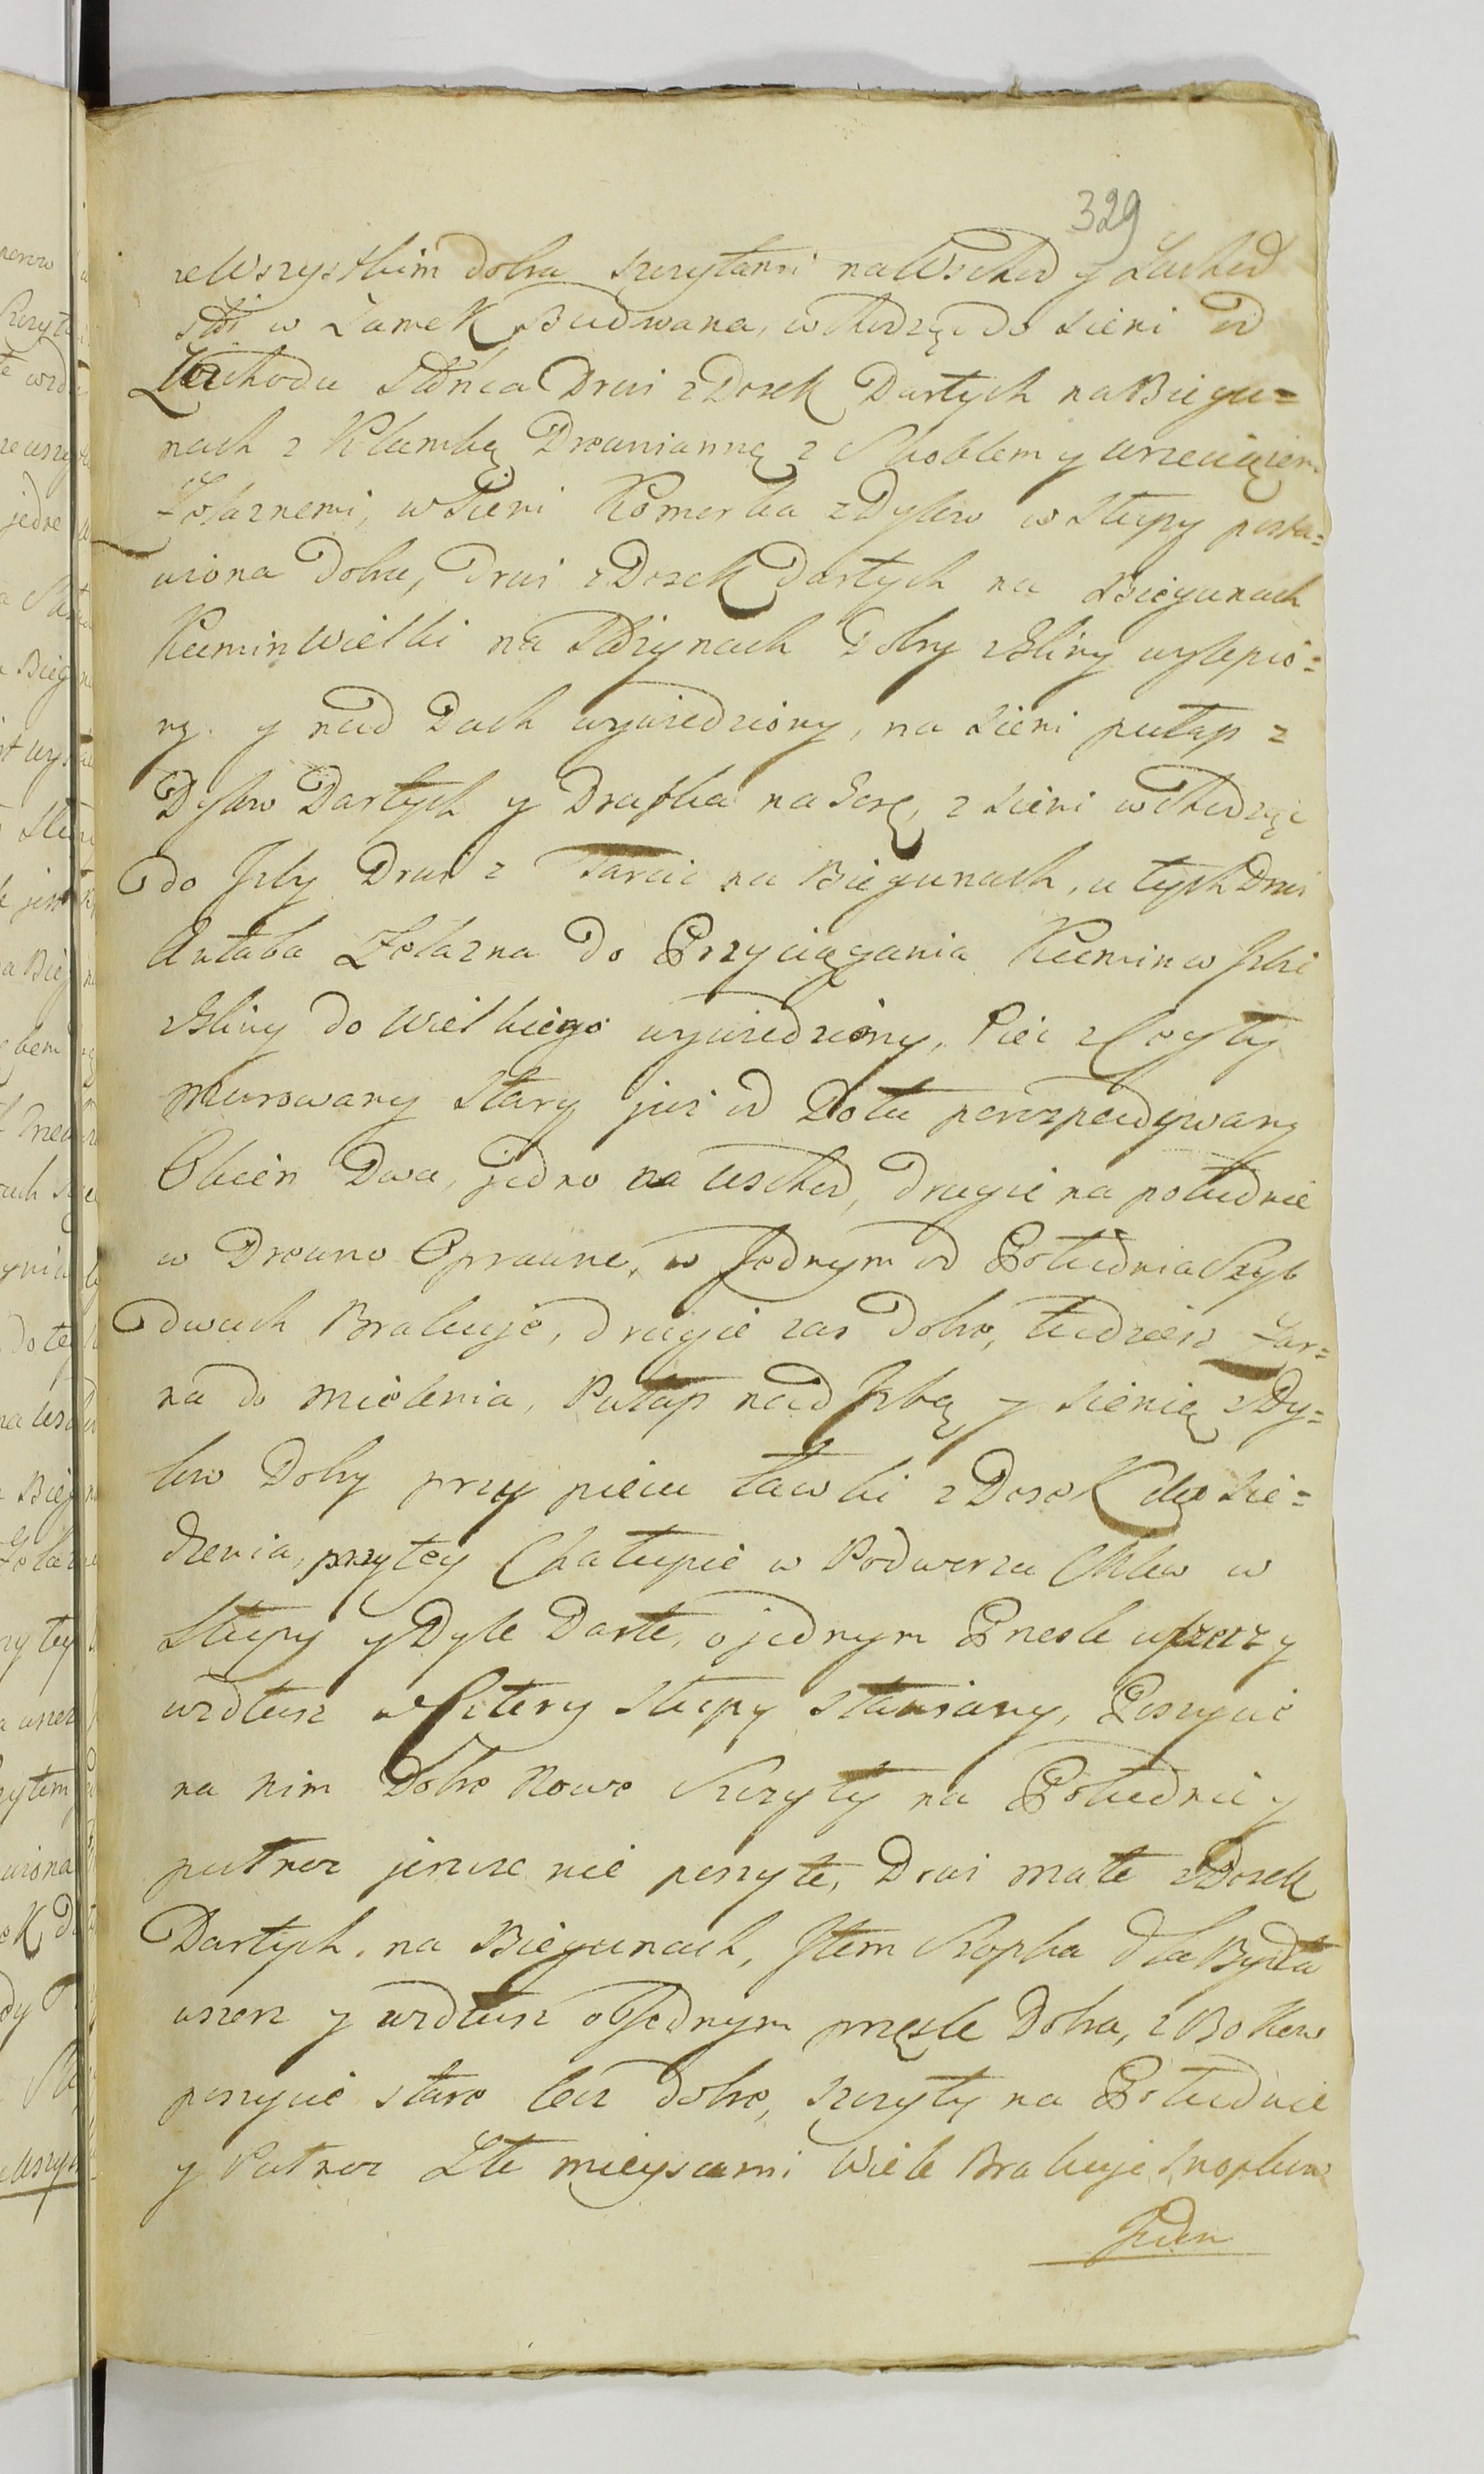 329
ze Wszystkim dobra szczytami na Wschod y Zachod
stoi w Zamek Budwana, wchodząc do sieni od
Zachodu słońca Drzwi z Dosek Dartych na Biegu=
nach z Klamką Drewnianną z Skoblem y wrzeciązem
Żelaznemi, w Sieni Komorka z Dylow w Słupy posta=
wiona dobra, Drzwi z Dosek dartych na Biegunach
Kumin Wielki na Słożynach Dobry z Gliny wylepio=
ny. y nad Dach wywiedziony, na sieni pułap z
Dylow Dartych y Drabka na Gorę, z sieni wchodząc
do Izby Drzwi z Tarcic na Biegunach, u tych Drzwi
Antaba Żelazna do Przyciągania Kumin w Izbi
z Gliny do Wielkiego wywiedziony, Piec z Cegły
murowany Stary już od Dołu porozpadywany
Okien Dwa, jedno na wschod, drugie na południe
w Drewno Oprawne, w Jednym od Południa Szyb
dwuch Brakuje, drugie zas dobre, tudziesz Żar=
na do mielenia, Pułap nad Izbą y Sienią z Dy=
low Dobry przy piecu ławki z Dosek do sie=
dzenia, przytey Chałupie w Podworzu Chlew w
Słupy y Dyle Darte, o jednym Przesle wszerz y
wzdłusz w Cztery słupy stawiany, Poszycie
na nim Dobre Nowe Szczyty na Południe y
putnoc jeszcze nie poszyte, Drzwi małe z Dosek
Dartych. na Biegunach, Item Szopka dla Bydła
wszerz y wzdłusz o Jednym przęsle Dobra, z Bokow
poszycie stare lecz dobre, szczyty na Południe
y Putnoc Złe mieyscami Wiele Brakuje Snopkow
Jeden